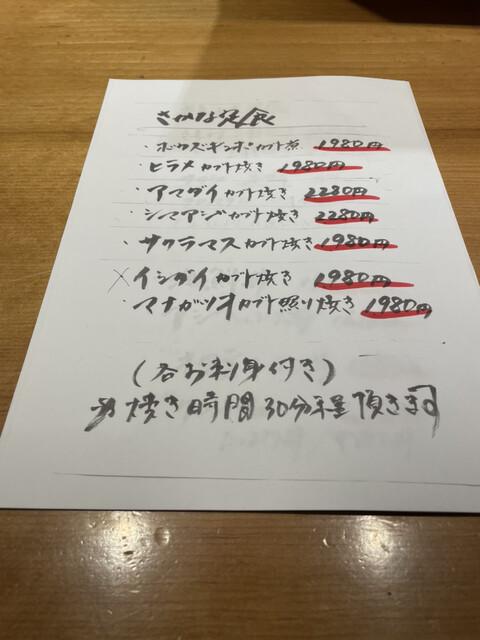 さかな定食
・ボウズギンポカブト煮 1980円
・ヒラメカブト焼き 1980円
・アマダイカブト焼き 2280円
・シマアジカブト焼き 2280円
・サクラマスカブト焼き 1980円
×イシダイカブト焼き 1980円
・マナガツオカブト照り焼き 1980円
(各お刺身付き)
※焼き時間30分程頂きます